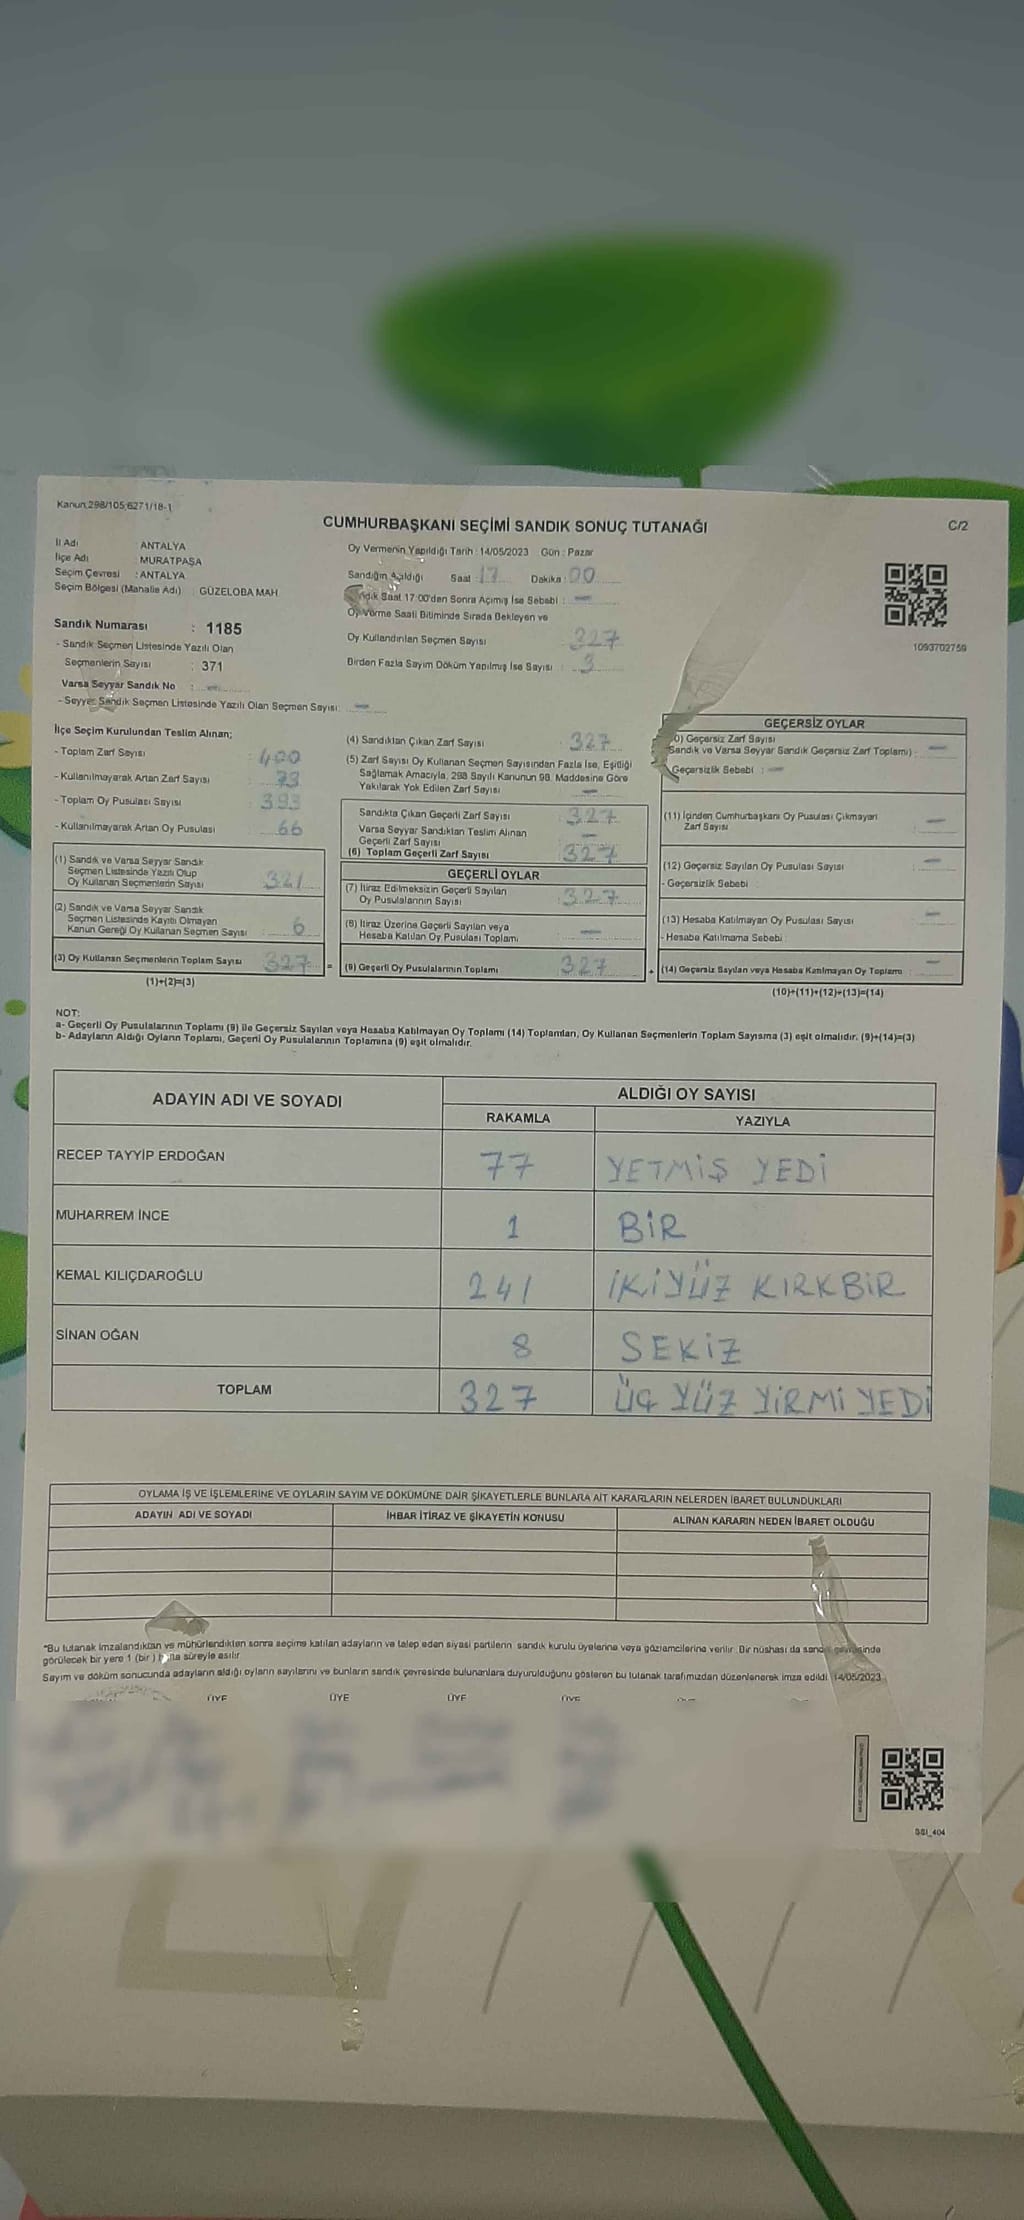 Kanun,298/105;6271/18-1
CUMHURBAŞKANI SEÇİMİ SANDIK SONUÇ TUTANAĞI
C/2
İl Adı : ANTALYA
İlçe Adı : MURATPAŞA
Seçim Çevresi : ANTALYA
Seçim Bölgesi (Mahalle Adı) : GÜZELOBA MAH.
Oy Vermenin Yapıldığı Tarih : 14/05/2023 Gün : Pazar
Sandığın Açıldığı Saat 17 Dakika : 00
Saat 17:00'den Sonra Açımış İse Sebebi : -
Oy Verme Saati Bitiminde Sırada Bekleyen ve
Oy Kullandırılan Seçmen Sayısı 327
Birden Fazla Sayım Döküm Yapılmış İse Sayısı : 3
1093702759
Sandık Numarası : 1185
- Sandık Seçmen Listesinde Yazılı Olan
Seçmenlerin Sayısı : 371
Varsa Seyyar Sandık No : -
- Seyyar Sandık Seçmen Listesinde Yazılı Olan Seçmen Sayısı: -
İlçe Seçim Kurulundan Teslim Alınan;
- Toplam Zarf Sayısı : 400
- Kullanılmayarak Artan Zarf Sayısı : 73
- Toplam Oy Pusulası Sayısı : 393
- Kullanılmayarak Artan Oy Pusulası : 66
(1) Sandık ve Varsa Seyyar Sandık
Seçmen Listesinde Yazılı Olup
Oy Kullanan Seçmenlerin Sayısı 321
(2) Sandık ve Varsa Seyyar Sandık
Seçmen Listesinde Kayıtlı Olmayan
Kanun Gereği Oy Kullanan Seçmen Sayısı : 6
(3) Oy Kullanan Seçmenlerin Toplam Sayısı 327 =
(1)+(2)=(3)
(4) Sandıktan Çıkan Zarf Sayısı : 327
(5) Zarf Sayısı Oy Kullanan Seçmen Sayısından Fazla İse, Eşitliği
Sağlamak Amacıyla, 298 Sayılı Kanunun 98. Maddesine Göre
Yakılarak Yok Edilen Zarf Sayısı : -
Sandıkta Çıkan Geçerli Zarf Sayısı : 327
Varsa Seyyar Sandıktan Teslim Alınan
Geçerli Zarf Sayısı : -
(6) Toplam Geçerli Zarf Sayısı 327
GEÇERLİ OYLAR
(7) İtiraz Edilmeksizin Geçerli Sayılan
Oy Pusulalarının Sayısı : 327
(8) İtiraz Üzerine Geçerli Sayılan veya
Hesaba Katılan Oy Pusulası Toplamı : -
(9) Geçerli Oy Pusulalarının Toplamı : 327 +
GEÇERSİZ OYLAR
0) Geçersiz Zarf Sayısı
Sandık ve Varsa Seyyar Sandık Geçersiz Zarf Toplamı) : -
Geçersizlik Sebebi : -
(11) İçinden Cumhurbaşkanı Oy Pusulası Çıkmayan
Zarf Sayısı : -
(12) Geçersiz Sayılan Oy Pusulası Sayısı : -
- Geçersizlik Sebebi :
(13) Hesaba Katılmayan Oy Pusulası Sayısı : -
- Hesaba Katılmama Sebebi :
(14) Geçersiz Sayılan veya Hesaba Katılmayan Oy Toplamı : -
(10)+(11)+(12)+(13)=(14)
NOT:
a- Geçerli Oy Pusulalarının Toplamı (9) ile Geçersiz Sayılan veya Hesaba Katılmayan Oy Toplamı (14) Toplamları, Oy Kullanan Seçmenlerin Toplam Sayısına (3) eşit olmalıdır. (9)+(14)=(3)
b- Adayların Aldığı Oyların Toplamı, Geçerli Oy Pusulalarının Toplamına (9) eşit olmalıdır.
ADAYIN ADI VE SOYADI
ALDIĞI OY SAYISI
RAKAMLA YAZIYLA
RECEP TAYYİP ERDOĞAN 77 YETMİŞ YEDİ
MUHARREM İNCE 1 BİR
KEMAL KILIÇDAROĞLU 241 İKİYÜZ KIRKBİR
SİNAN OĞAN 8 SEKİZ
TOPLAM 327 ÜÇ YÜZ YİRMİ YEDİ
OYLAMA İŞ VE İŞLEMLERİNE VE OYLARIN SAYIM VE DÖKÜMÜNE DAİR ŞİKAYETLERLE BUNLARA AİT KARARLARIN NELERDEN İBARET BULUNDUKLARI
ADAYIN ADI VE SOYADI İHBAR İTİRAZ VE ŞİKAYETİN KONUSU ALINAN KARARIN NEDEN İBARET OLDUĞU
*Bu tutanak imzalandıktan ve mühürlendikten sonra seçime katılan adayların ve talep eden siyasi partilerin sandık kurulu üyelerine veya gözlemcilerine verilir. Bir nüshası da sandık çevresinde
görülecek bir yere 1 (bir) hafta süreyle asılır.
Sayım ve döküm sonucunda adayların aldığı oyların sayılarını ve bunların sandık çevresinde bulunanlara duyurulduğunu gösteren bu tutanak tarafımızdan düzenlenerek imza edildi. 14/05/2023
ÜYE ÜYE ÜYE ÜYE